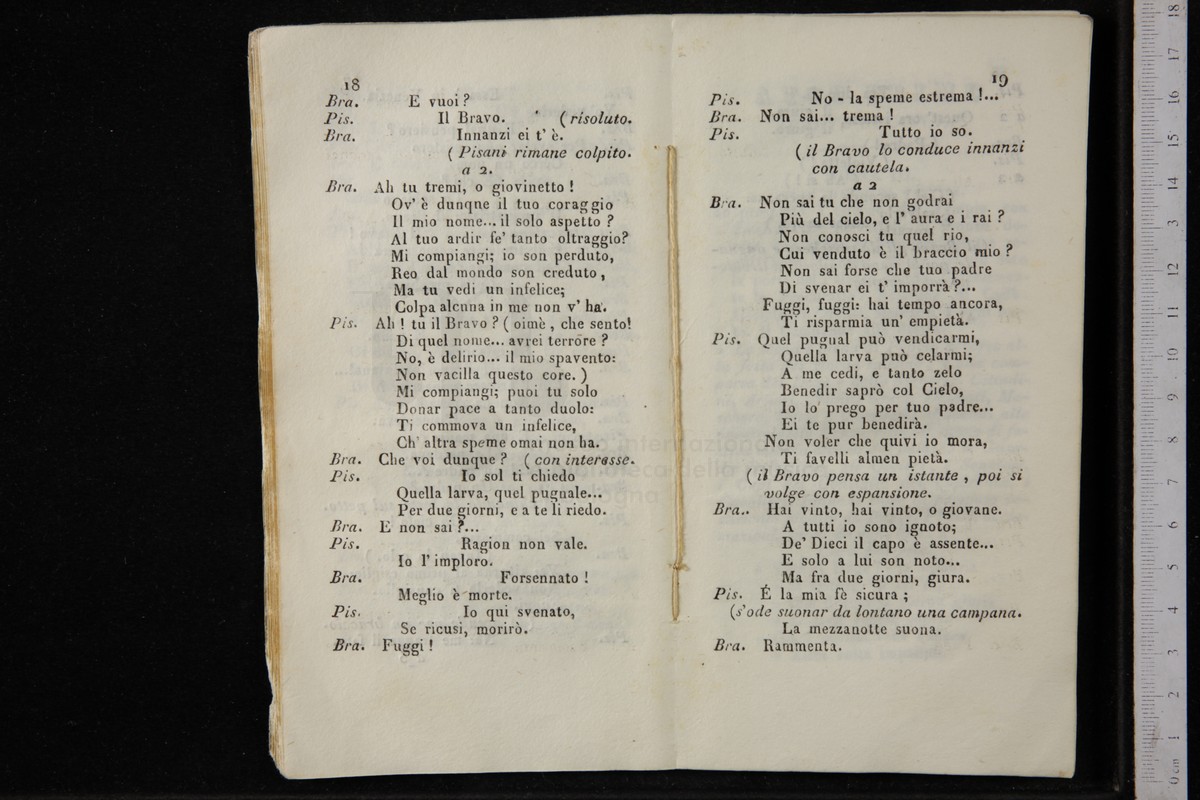 18
Bra. E vuoi ?
Pis. Il Bravo. ( risoluto.
Bra. Innanzi ei t' è.
( Pisani rimane colpito.
a 2.
Bra. Ah tu tremi, o giovinetto !
Ov' è dunqne il tuo coraggio
Il mio nome... il solo aspetto ?
Al tuo ardir fe' tanto oltraggio?
Mi compiangi; io son perduto,
Reo dal mondo son creduto,
Ma tu vedi un infelice;
Colpa alcnna in me non v' ha.
Pis. Ah ! tu il Bravo ? ( oimè , che sento!
Di quel nome... avrei terrore ?
No, è delirio... il mio spavento:
Non vacilla questo core. )
Mi compiangi; puoi tu solo
Donar pace a tanto duolo:
Ti commova un infelice,
Ch' altra speme omai non ha.
Bra. Che voi dunque ? ( con interesse.
Pis. Io sol ti chiedo
Quella larva, quel pugnale...
Per due giorni, e a te li riedo.
Bra. E non sai ?...
Pis. Ragion non vale.
Io l' imploro.
Bra. Forsennato !
Meglio è morte.
Pis. Io qui svenato,
Se ricusi, morirò.
Bra. Fuggi !
19
Pis. No - la speme estrema !...
Bra. Non sai... trema !
Pis. Tutto io so.
( il Bravo lo conduce innanzi
con cautela.
a 2
Bra. Non sai tu che non godrai
Più del cielo, e l' aura e i rai ?
Non conosci tu quel rio,
Cui venduto è il braccio mio ?
Non sai forse che tuo padre
Di svenar ei t' imporrà ?...
Fuggi, fuggi: hai tempo ancora,
Ti risparmia un' empietà.
Pis. Quel pugnal può vendicarmi,
Quella larva può celarmi;
A me cedi, e tanto zelo
Benedir saprò col Cielo,
Io lo prego per tuo padre...
Ei te pur benedirà.
Non voler che quivi io mora,
Ti favelli almen pietà.
( il Bravo pensa un istante , poi si
volge con espansione.
Bra.. Hai vinto, hai vinto, o giovane.
A tutti io sono ignoto;
De' Dieci il capo è assente...
E solo a lui son noto...
Ma fra due giorni, giura.
Pis. É la mia fè sicura ;
(s'ode suonar da lontano una campana.
La mezzanotte suona.
Bra. Rammenta.